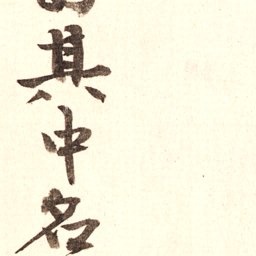 其中名